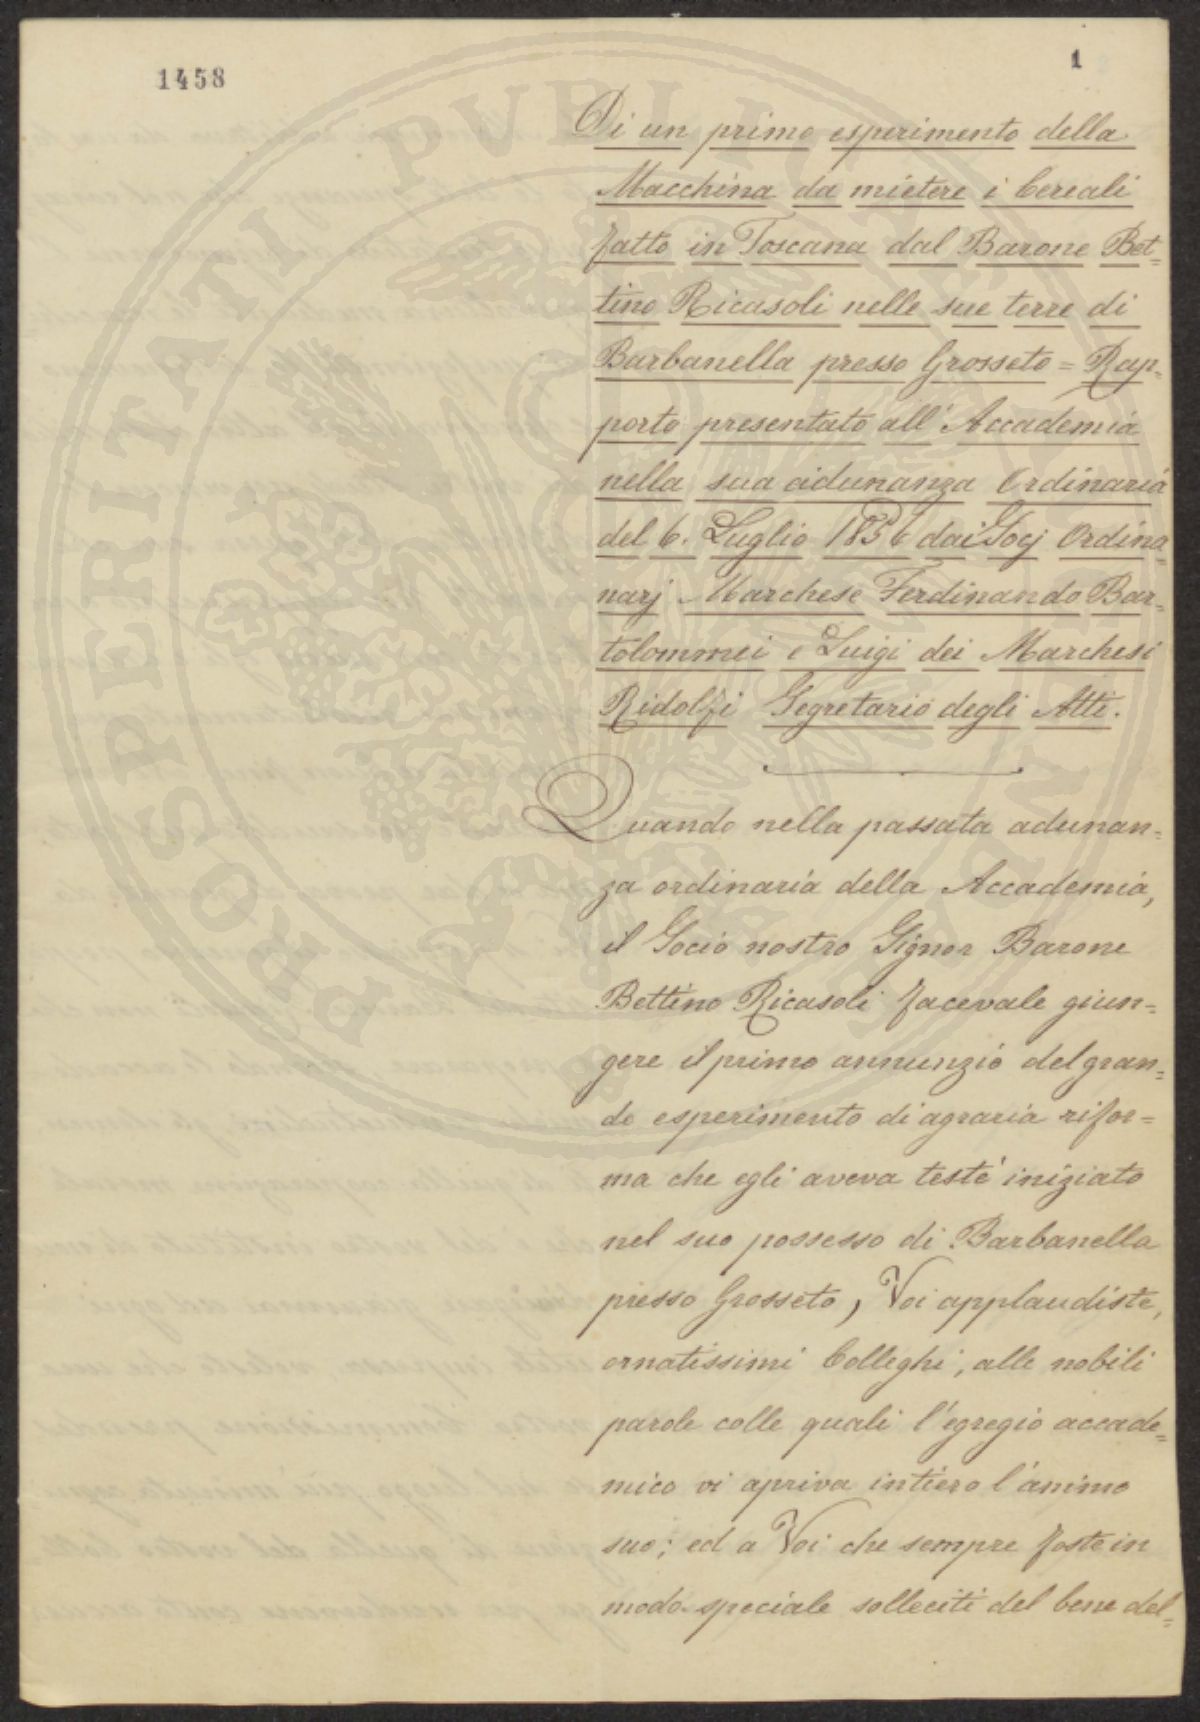 1458
1
Di un primo esperimento della
Macchina da mietere i Cereali
fatto in Toscana dal Barone Bet=
tino Ricasoli nelle sue terre di
Barbanella presso Grosseto = Rap=
porto presentato all' Accademia
nella sua adunanza Ordinaria
del 6. Luglio 1856 dai Socj Ordina=
narj Marchese Ferdinando Bar=
tolommei e Luigi dei Marchesi
Ridolfi Segretario degli Atti.
Quando nella passata adunan=
za ordinaria della Accademia,
il Socio nostro Signor Barone
Bettino Ricasoli facevale giun=
gere il primo annunzio del gran=
de esperimento di agraria rifor=
ma che egli aveva testè iniziato
nel suo possesso di Barbanella
presso Grosseto, Voi applaudiste,
ornatissimi Colleghi, alle nobili
parole colle quali l'egregio accade=
mico vi apriva intiero l'animo
suo; ed a Voi che sempre foste in
modo speciale solleciti del bene del=
PROSPERITATI PUBLICAE